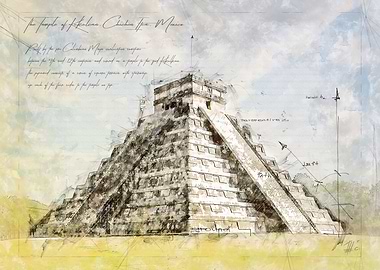 The Temple of Kukulcan, Chichen Itza, Mexico
Built by the pre-Columbian Maya civilization sometime
between the 9th and 12th centuries and served as a temple to the god Kukulcan
the pyramid consists of a series of square terraces with stairways
up each of the four sides to the temple on top